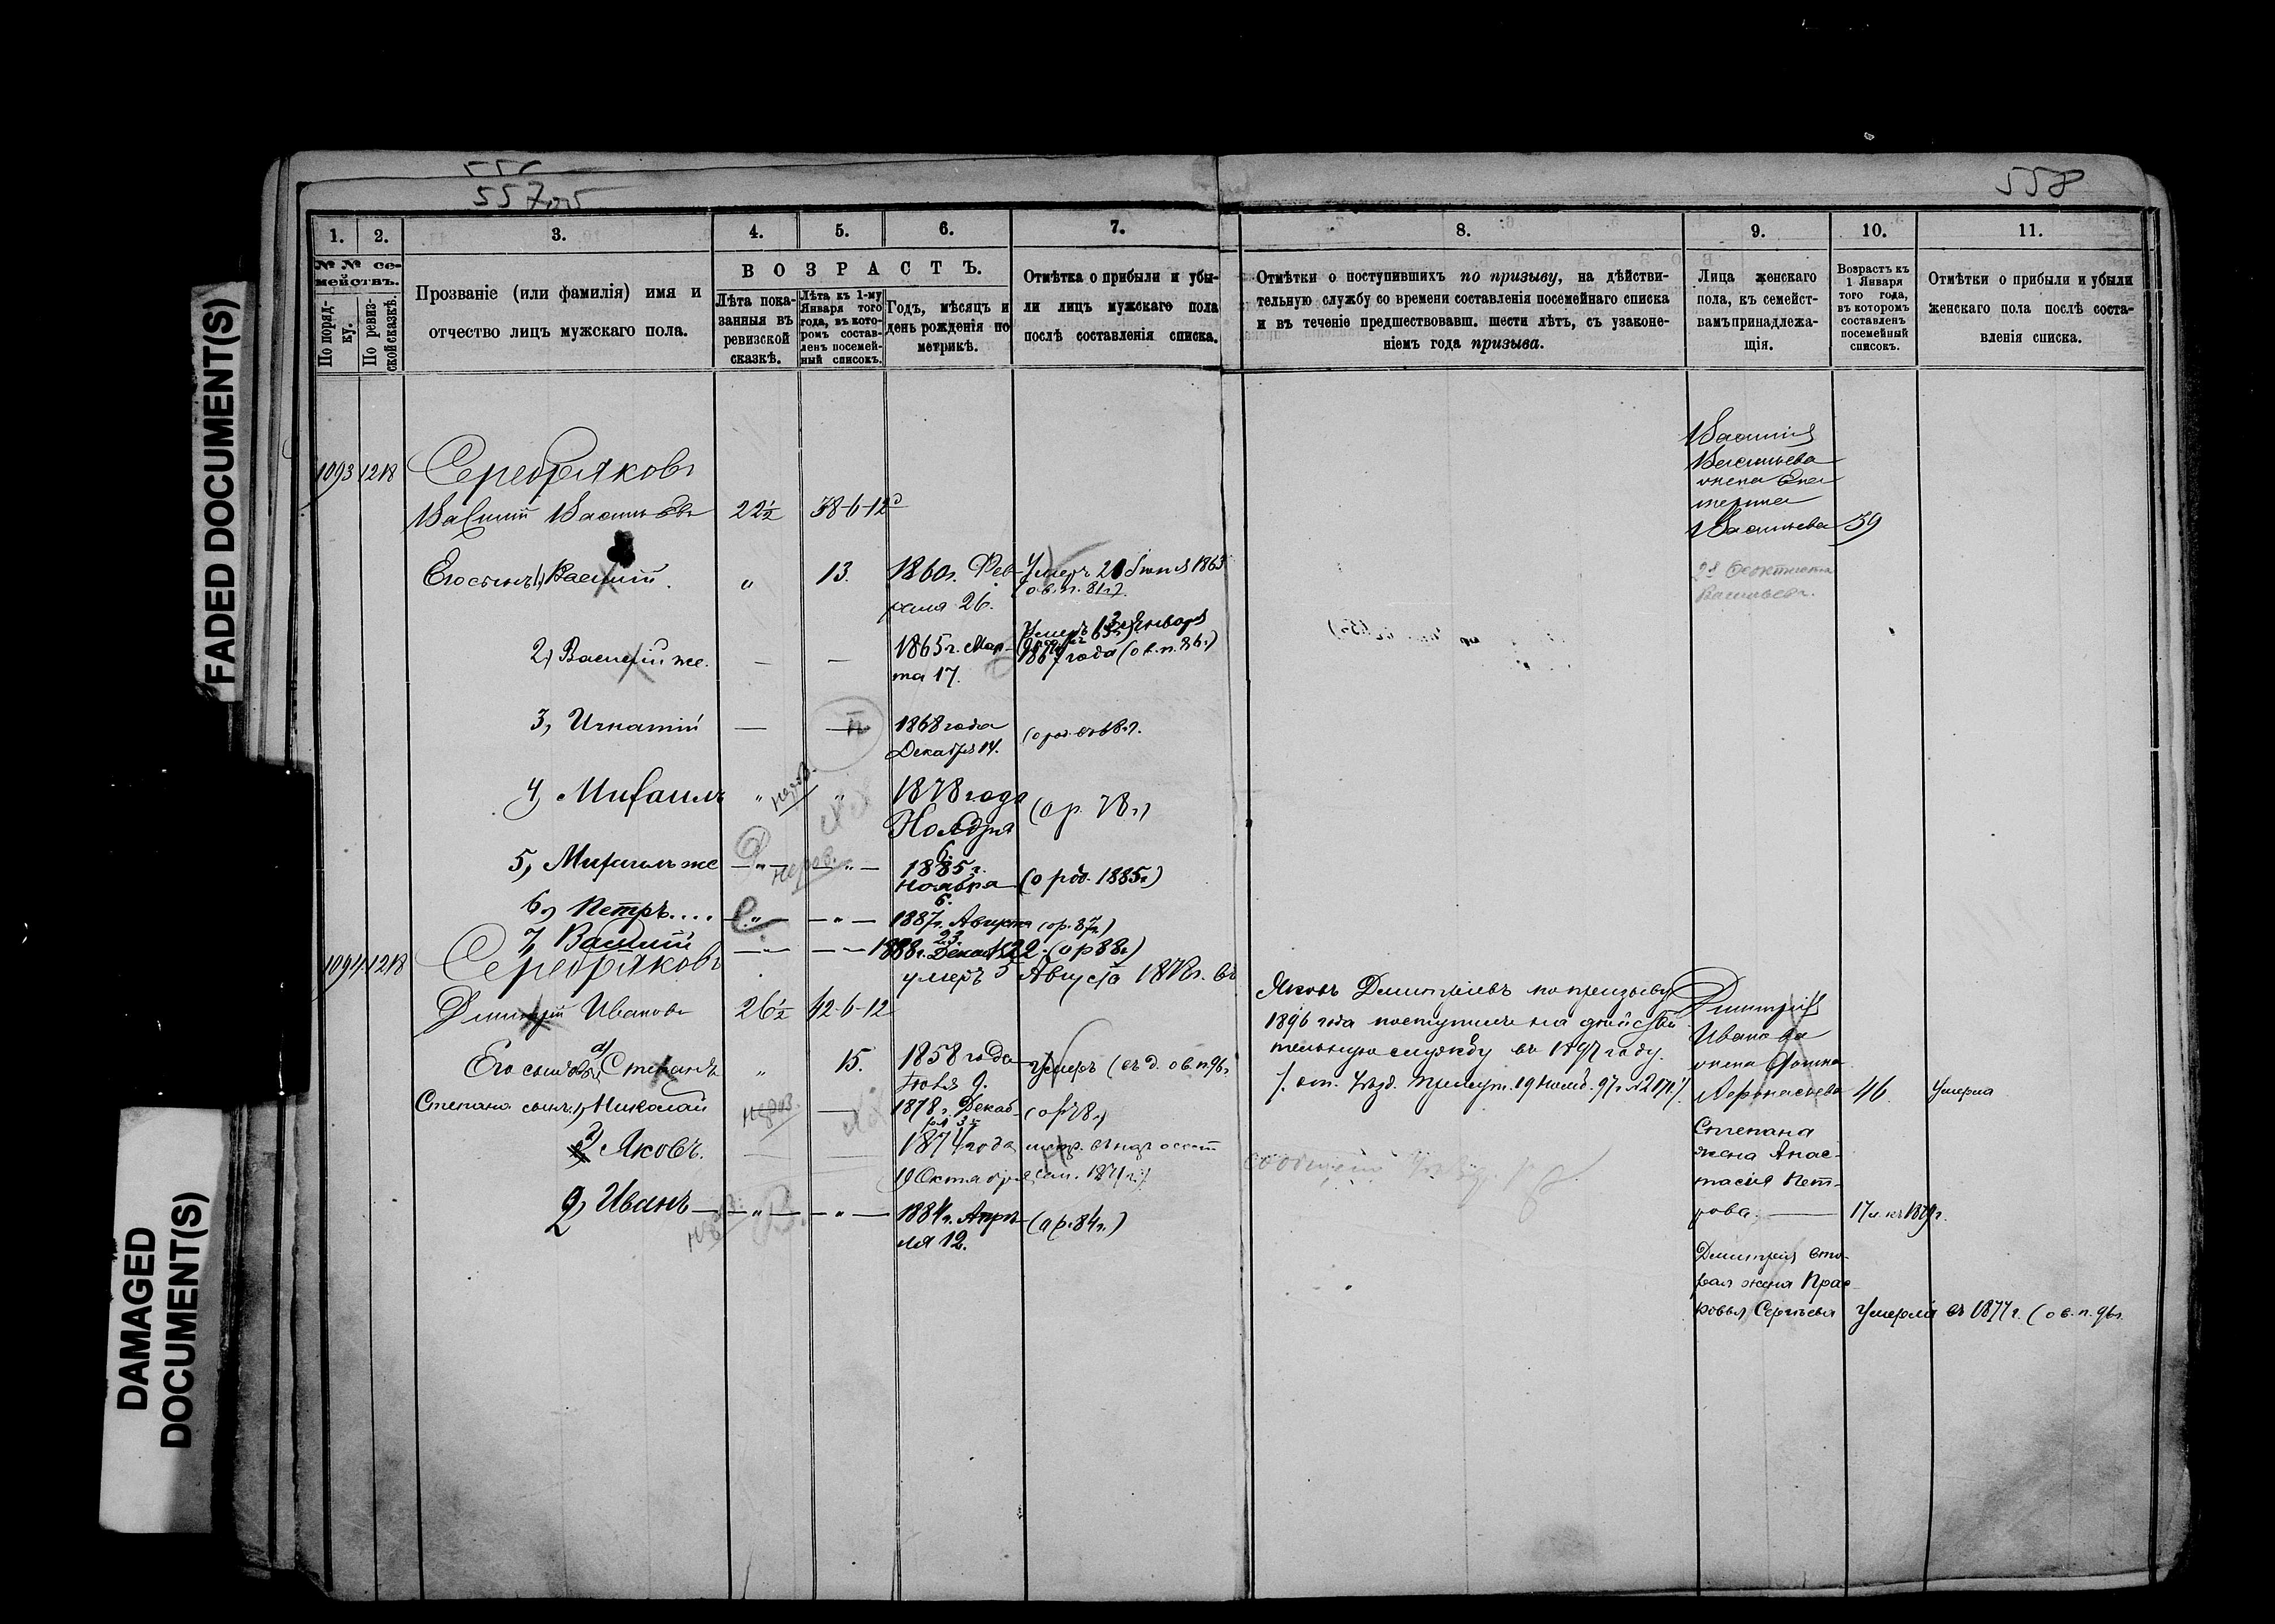 FADED DOCUMENT(S)
DAMAGED DOCUMENT(S)
557
558
1. 2. 3. 4. 5. 6. 7. 8. 9. 10. 11.
№№ се-
мействъ.
По поряд-
ку.
По ревиз-
ской сказкѣ.
Прозваніе (или фамилія) имя и
отчество лицъ мужскаго пола.
ВОЗРАСТЪ.
Лѣта пока-
занныя въ
ревизской
сказкѣ.
Лѣта къ 1-му
Января того
года, въ кото-
ромъ состав-
ленъ посемей-
ный списокъ.
Годъ, мѣсяцъ и
день рожденія по
метрикѣ.
Отмѣтка о прибыли и убы-
ли лицъ мужскаго пола
послѣ составленія списка.
Отмѣтки о поступившихъ по призыву, на дѣйстви-
тельную службу со времени составленія посемейнаго списка
и въ теченіе предшествовавш. шести лѣтъ, съ узаконе-
ніемъ года призыва.
Лица женскаго
пола, къ семейст-
вамъ принадлежа-
щія.
Возрастъ къ
1 Января
того года,
въ которомъ
составленъ
посемейный
списокъ.
Отмѣтки о прибыли и убыли
женскаго пола послѣ соста-
вленія списка.
1093 1218 Серебряковъ
Василій Васильевъ 22½ 38-6-12
Василія
Васильева
жена Ека
терина
Васильева 39
Его сынъ 1) Василій. " 13. 1860г. Фев-
раля 26.
Умеръ
(о в. п. 81г).
2я Феоктиста
Васильева.
2) Василій же. — — 1865г. Мар-
та 17.
Умеръ Января
1867 года (о в. п. 86г.)
3, Игнатій — — 1868 года
Декабря 14.
4, Михаилъ " " 1878 года
Ноября
6.
(о р. 78г)
5, Михаилъ же —"— —"— 1885г.
ноября
6.
(о род. 1885г)
6, Петръ.... —"— —"— 1887г. Августа
23.
(о р. 87г)
7, Василій —"— —"— 1888г. Декаб. 22. (о р 88г)
1094 1218 Серебряковъ
умеръ 5 Августа 1878г.
Дмитрій Ивановъ 26½ 42-6-12
Яковъ Дмитріевъ по призыву
1896 года поступилъ на дѣйстви
тельную службу въ 1897 году.
Дмитрія
Иванова
жена
46. Умерла
Его сынъ а) Степанъ " 15. 1858 года
Іюля 9.
Умеръ
Степана сынъ 1, Николай — — 1878г. Декаб-
ря
(о р 78г)
2 Яковъ. — — 1874 года
19 Октября
Степана
жена Анас-
тасія Пет-
рова. — 17 л. къ 1879г.
2, Иванъ —"— —"— 1884г. Апрѣ-
ля 12.
(о р. 84г.)
Дмитрія вто-
рая жена Прас
ковья Сергѣева Умерла въ 1877г. (о в. п. 96г.